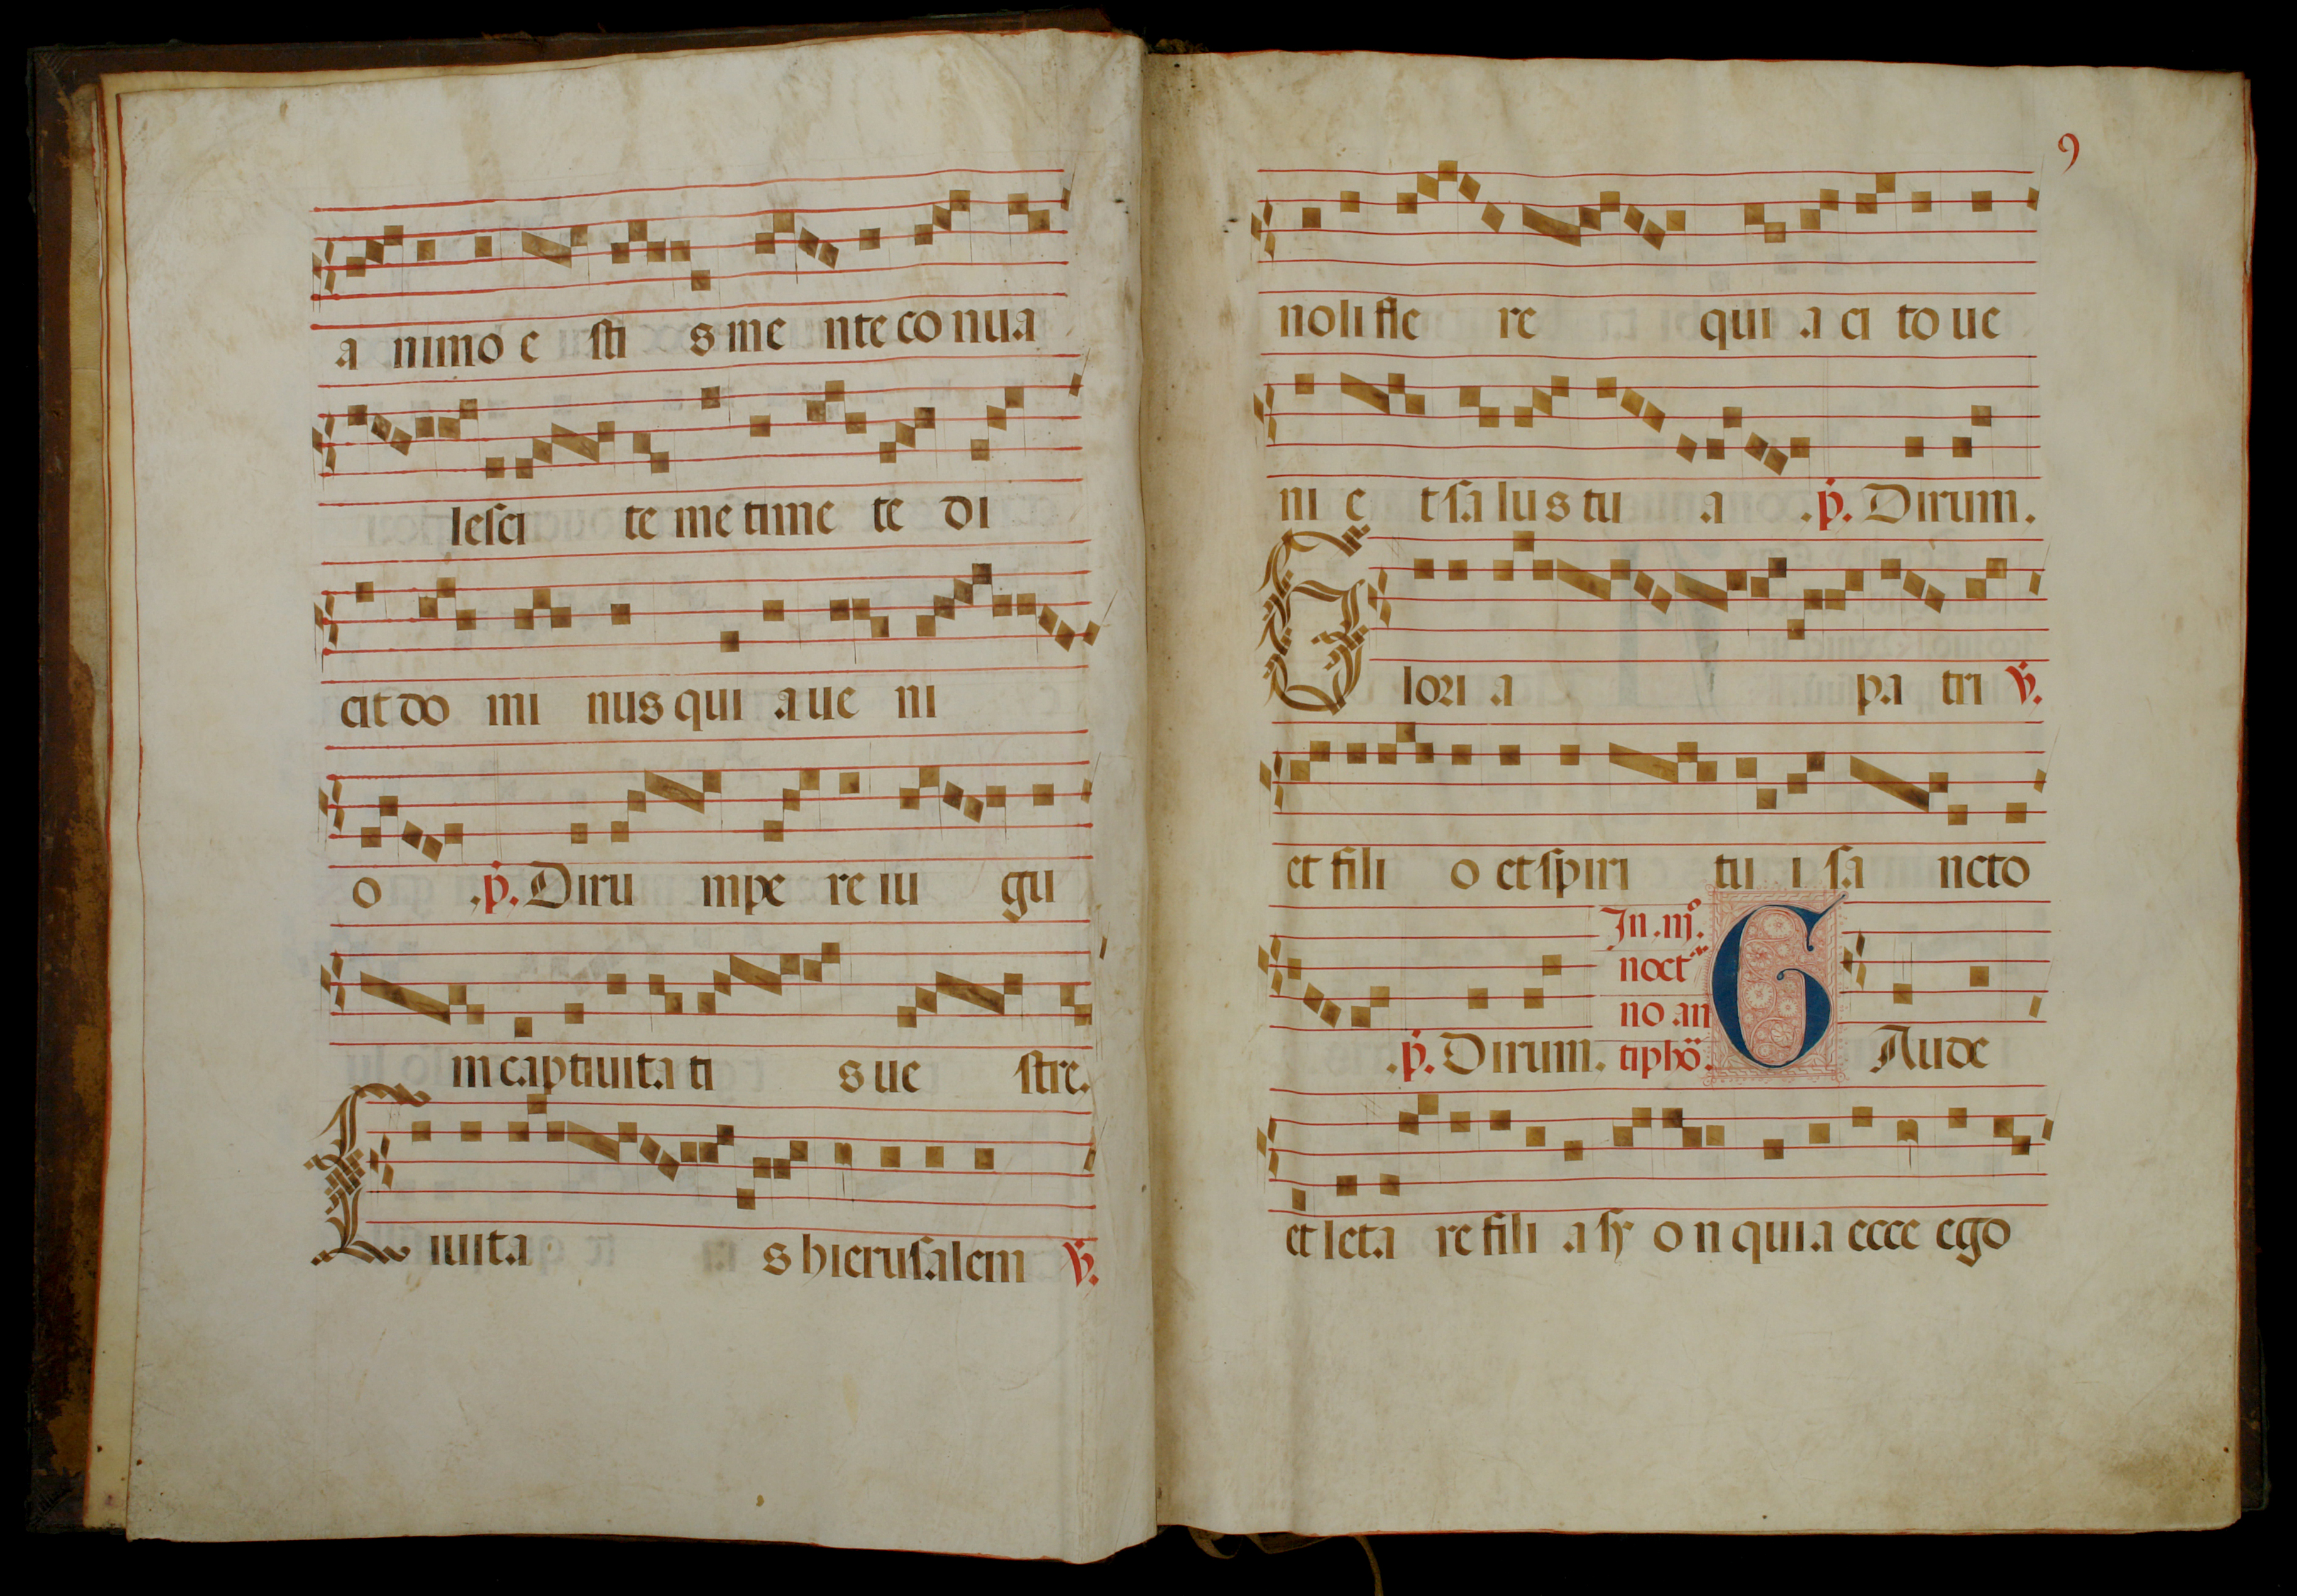 a nimo e sti s me nte co nua
lesci te me time te di
cit do mi nus qui a ue ni
o .p. Diru mpe re iu gu
m captiuita ti s ue stre.
Ciuita s hierusalem V.
9
noli fle re qui a ci to ue
ni e t salus tu a .p. Dirum.
Glori a pa tri V.
et fili o et spiri tu i sa ncto
.p. Dirum. In .iij.º noctº no an tiphö. GAude
et leta re fili a sy o n quia ecce ego